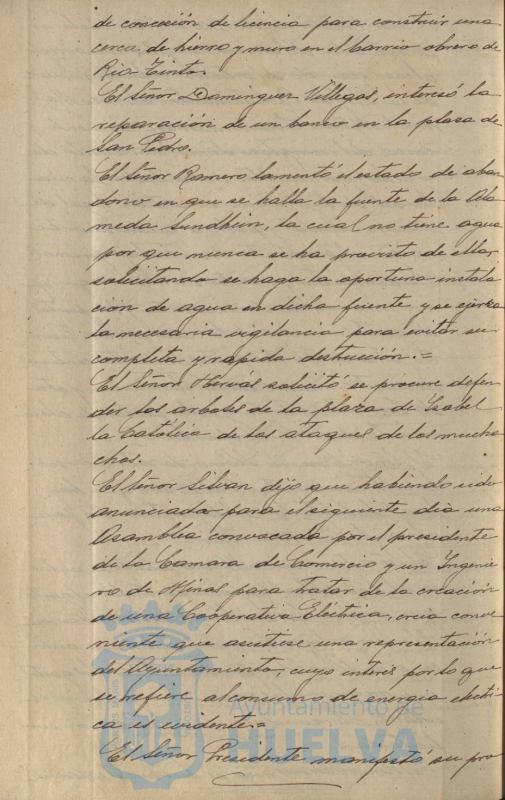 de concesión de licencia para construir una
cerca de hierro y muro en el barrio obrero de
Rio Tinto.
El Señor Dominguez Villegas, interesó la
reparación de un banco en la plaza de
San Pedro.
El Señor Ramero lamentó el estado de aban
dono en que se halla la fuente de la Ala
meda Sundhein, la cual no tiene agua
por que nunca se ha provisto de ella,
solicitando se haga la oportuna instala
ción de agua en dicha fuente y se ejerza
la necesaria vigilancia para evitar su
completa y rapida destrucción.=
El Señor Hervás solicitó se procure defen
der los arboles de la plaza de Isabel
la Católica de los ataques de los mucha
chos.
El Señor Silvan dijo que habiendo sido
anunciada para el siguiente dia una
Asamblea convocada por el presidente
de la Camara de Comercio y un Ingenie
ro de Minas para tratar de la creación
de una Cooperativa Eléctrica, creia conve
niente que asistiese una representación
del Ayuntamiento, cuyo interés por lo que
se refiere al consumo de energia electri
ca es evidente.=
El Señor Presidente manifestó su pro
Ayuntamiento de
HUELVA